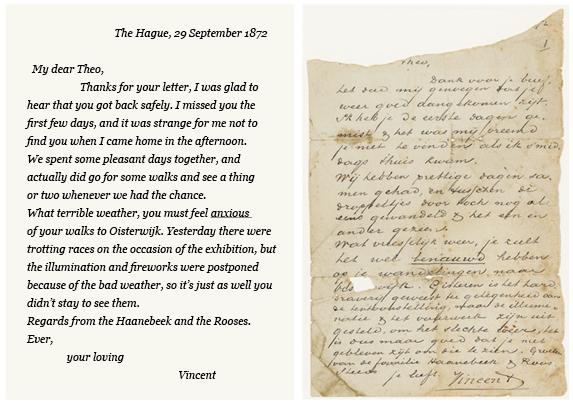 The Hague, 29 September 1872
My dear Theo,
Thanks for your letter, I was glad to
hear that you got back safely. I missed you the
first few days, and it was strange for me not to
find you when I came home in the afternoon.
We spent some pleasant days together, and
actually did go for some walks and see a thing
or two whenever we had the chance.
What terrible weather, you must feel anxious
of your walks to Oisterwijk. Yesterday there were
trotting races on the occasion of the exhibition, but
the illumination and fireworks were postponed
because of the bad weather, so it's just as well you
didn't stay to see them.
Regards from the Haanebeek and the Rooses.
Ever,
your loving
Vincent
Theo,
Dank voor je brief,
het deed mij genoegen dat je
weer goed aangekomen zijt.
Ik heb je de eerste dagen ge-
mist & het was mij vreemd
je niet te vinden als ik smid
dags thuis kwam.
Wij hebben prettige dagen sa-
men gehad, en tusschen de
droppeltjes door toch nog al
eens gewandeld & het een en
ander gezien.
Wat vreeselijk weer, je zult
het wel benauwd hebben
op je wandelingen naar
wijk. Gisteren is het hard
draverij geweest ter gelegenheid van
de tentoonstelling, maar de illumi-
natie & het vuurwerk zijn uit
gesteld, om het slechte weer, het
is dus maar goed dat je niet
gebleven zijt om die te zien. Groete
van de familie Haanebeek & Roos
Steeds
je liefh.
Vincent